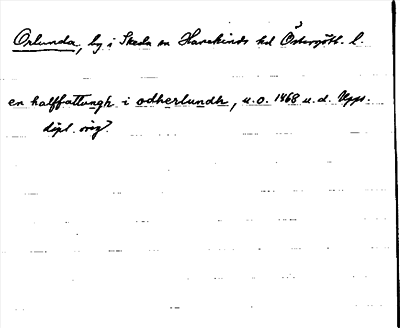 Orlunda, by i Skeda sn Hanekinds hd Östergötl. l.
en halffattungh i odherlundh, u.o. 1468 u.d. Upps.
dipl. orig.